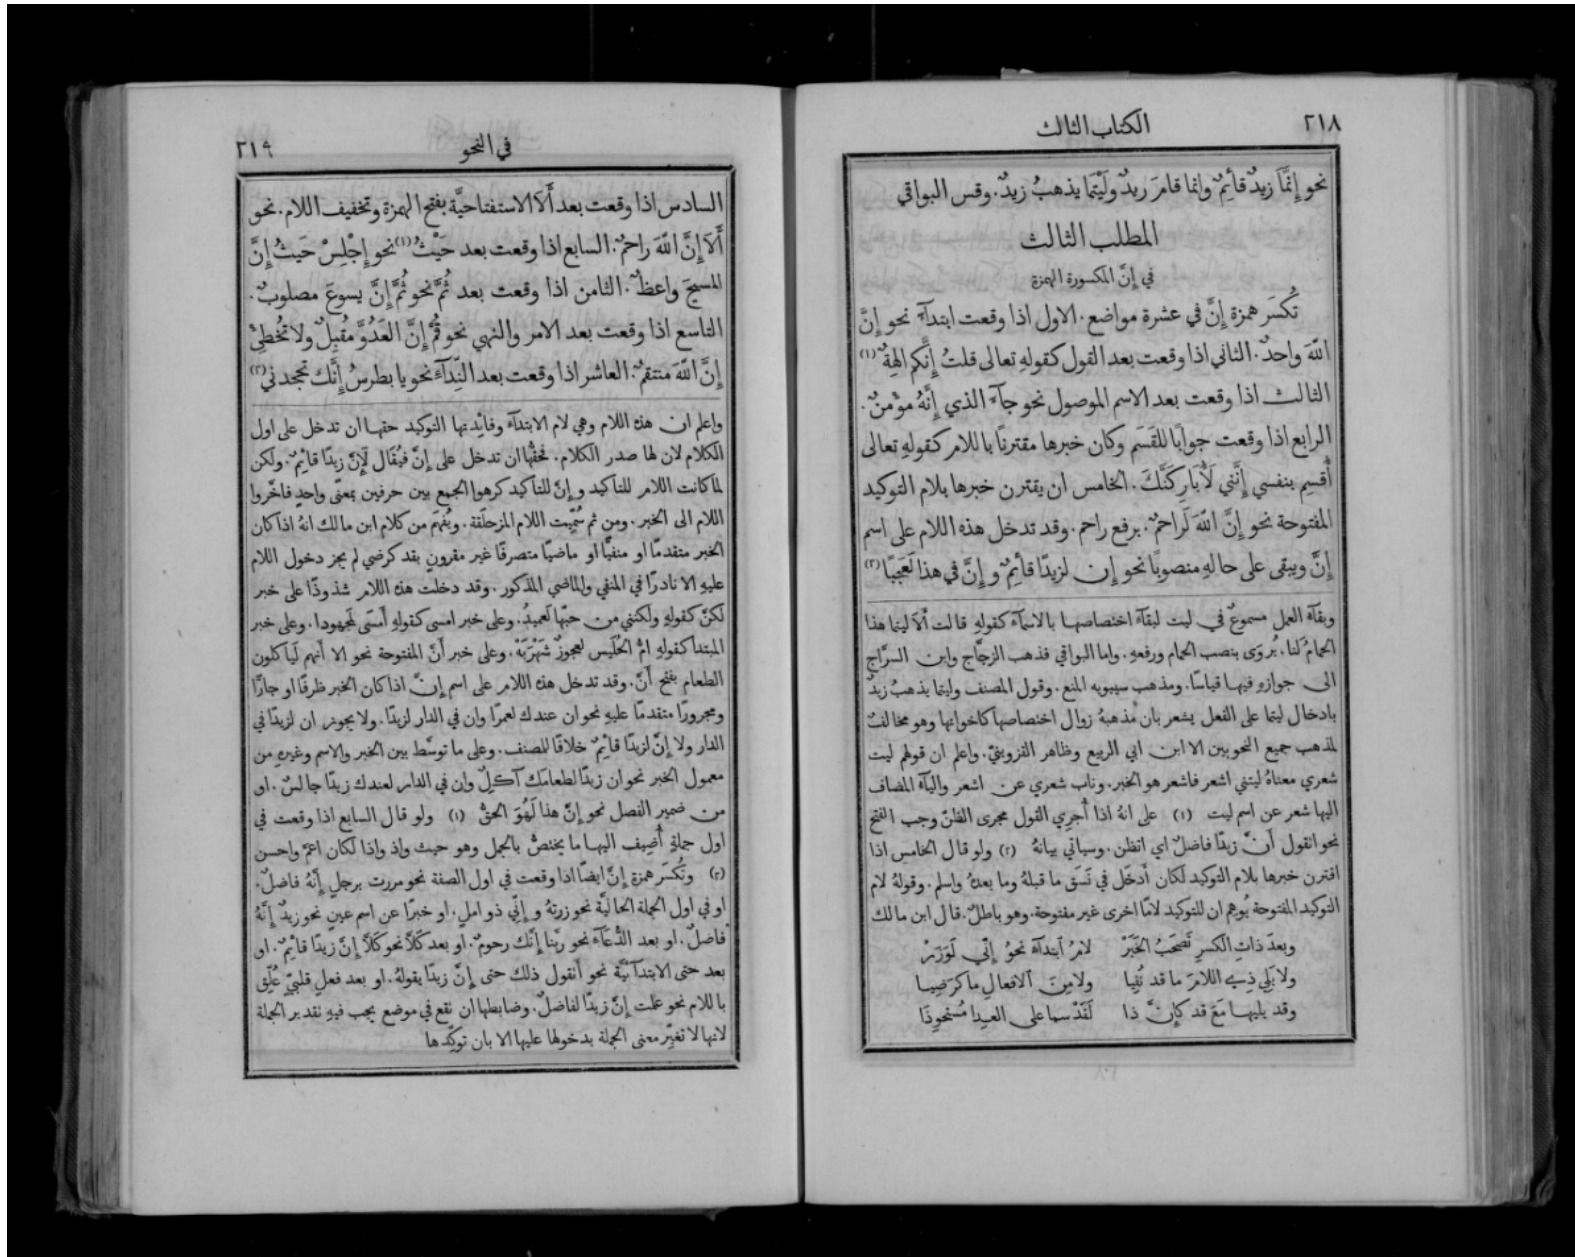 ٢١٨
الكتاب الثالث
نحو إِنَّمَا زيدٌ قائمٌ وانما قام زيدٌ ولَيْتَمَا يذهبُ زيدٌ. وقس البواقي
المطلب الثالث
في إنَّ المكسورة الهمزة
تُكسَر همزة إِنَّ في عشرة مواضع. الاول اذا وقعت ابتدآءً نحو إِنَّ
اللّٰهَ واحدٌ. الثاني اذا وقعت بعد القول كقولهِ تعالى قلتُ إِنَّكم الهةٌ (١)
الثالث اذا وقعت بعد الاسم الموصول نحو جآءَ الذي إِنَّهُ مؤْمنٌ.
الرابع اذا وقعت جوابًا للقَسَم وكان خبرها مقترنًا باللام كقولهِ تعالى
أُقسِم بنفسي إِنَّني لَأُبَارِكَنَّكَ. الخامس ان يقترن خبرها بلام التوكيد
المفتوحة نحو إِنَّ اللّٰهَ لَراحمٌ. برفع راحم. وقد تدخل هذه اللام على اسم
إِنَّ ويبقى على حالهِ منصوبًا نحو إن لزيدًا قائمٌ و إِنَّ في هذا لَعَجَبًا (٢)
وبقآء العمل مسموعٌ في ليت لبقآء اختصاصها بالاسمآء كقولهِ قالت أَلَا ليتما هذا
الحمامُ لنا. يُروَى بنصب الحمام ورفعهِ. واما البواقي فذهب الزجَّاج وابن السرَّاج
الى جوازهِ فيها قياسًا. ومذهب سيبويه المنع. وقول المصنف وليتما يذهبُ زيدٌ
بادخال ليتما على الفعل يشعر بان مذهبهُ زوال اختصاصها كاخواتها وهو مخالفٌ
لمذهب جميع النحويين الا ابن ابي الربيع وظاهر القزوينيّ. واعلم ان قولهم ليت
شعري معناهُ ليتني اشعر فاشعر هو الخبر. وناب شعري عن اشعر واليآء المضاف
اليها شعر عن اسم ليت (١) على انهُ اذا أُجرِي القول مجرى الظنّ وجب الفتح
نحو اتقول أَنَّ زيدًا فاضلٌ اي اتظن. وسياتي بيانهُ (٢) ولو قال الخامس اذا
اقترن خبرها بلام التوكيد لكان أَدخَل في نَسَق ما قبلهُ وما بعدهُ واسلم. وقولهُ لام
التوكيد المفتوحة يُوهِم ان للتوكيد لامًا اخرى غير مفتوحة. وهو باطلٌ. قال ابن مالك
وبعدَ ذاتِ الكسرِ تصحَبُ الخَبَرْ لامُ ابتدآءٍ نحوُ إِنّي لَوَزَرْ
ولا يَلِي ذِي اللامَ ما قد نُفِيا ولا مِنَ الافعالِ ما كرَضِيا
وقد يليها مَعَ قد كإِنَّ ذا لَقَدْ سما على العِدا مُستحوِذَا
في النحو
٢١٩
السادس اذا وقعت بعد أَلَا الاستفتاحيَّة بفتح الهمزة وتخفيف اللام. نحو
أَلَا إِنَّ اللّٰهَ راحمٌ. السابع اذا وقعت بعد حَيْثُ (١) نحو إِجْلِسْ حَيثُ إِنَّ
المسيحَ واعظٌ. الثامن اذا وقعت بعد ثُمَّ نحو ثُمَّ إِنَّ يسوعَ مصلوبٌ.
التاسع اذا وقعت بعد الامر والنهي نحو قُمْ إِنَّ العَدُوَّ مُقبِلٌ ولا تُخْطِئْ
إِنَّ اللّٰهَ منتقمٌ. العاشر اذا وقعت بعد النِّدَآءِ نحو يا بطرسُ إِنَّك تجحدني (٢)
واعلم ان هذه اللام وهي لام الابتدآء وفائدتها التوكيد حقها ان تدخل على اول
الكلام لان لها صدر الكلام. فحقُّها ان تدخل على إنّ فيُقَال لَإِنّ زيدًا قائمٌ. ولكن
لما كانت اللام للتأكيد وإنّ للتأكيد كرهوا الجمع بين حرفين بمعنًى واحدٍ فاخَّروا
اللام الى الخبر. ومن ثم سُمِّيت اللام المزحلَقة. ويُفهَم من كلام ابن مالك انهُ اذا كان
الخبر متقدمًا او منفيًّا او ماضيًا متصرفًا غير مقرونٍ بقد كرضي لم يجز دخول اللام
عليهِ الا نادرًا في المنفي والماضي المذكور. وقد دخلت هذه اللام شذوذًا على خبر
لكنّ كقولهِ ولكنني من حبّها لعميدُ. وعلى خبر امسى كقولهِ أَمسَى لمجهودا. وعلى خبر
المبتدا كقولهِ امُّ الحُلَيس لعجوزٌ شَهْرَبَهْ. وعلى خبر أَنّ المفتوحة نحو الا أَنهم لَيأكلون
الطعام بفتح أَنّ. وقد تدخل هذه اللام على اسم إنَّ اذا كان الخبر ظرفًا او جارًّا
ومجرورًا متقدمًا عليهِ نحو ان عندك لعمرًا وان في الدار لزيدًا. ولا يجوز ان لزيدًا في
الدار ولا إنّ لزيدًا قائمٌ خلافًا للصنف. وعلى ما توسَّط بين الخبر والاسم وغيرهِ من
معمول الخبر نحو ان زيدًا لطعامَك آكلٌ وان في الدار لعندك زيدًا جالسٌ. او
من ضمير الفصل نحو إنّ هذا لَهُوَ الحقّ (١) ولو قال السابع اذا وقعت في
اول جملةٍ أُضِيف اليها ما يختصُّ بالجمل وهو حيث واذ واذا لكان اعمّ واحسن
(٢) وتُكسَر همزة إنّ ايضًا اذا وقعت في اول الصفة نحو مررت برجلٍ إِنَّهُ فاضلٌ.
او في اول الجملة الحاليَّة نحو زرتهُ و إِنّي ذو املٍ. او خبرًا عن اسم عينٍ نحو زيدٌ إِنَّهُ
فاضلٌ. او بعد الدُّعَآء نحو ربَّنا إِنَّك رحومٌ. او بعد كَلَّا نحو كَلَّا إِنّ زيدًا قائمٌ. او
بعد حتى الابتدآئيَّة نحو أتقول ذلك حتى إِنَّ زيدًا يقولهُ. او بعد فعلٍ قلبيٍّ عُلِّق
باللام نحو علمت إِنّ زيدًا لفاضلٌ. وضابطها ان تقع في موضع يجب فيهِ تقدير الجملة
لانها لا تغيّر معنى الجملة بدخولها عليها الا بان توكّدها